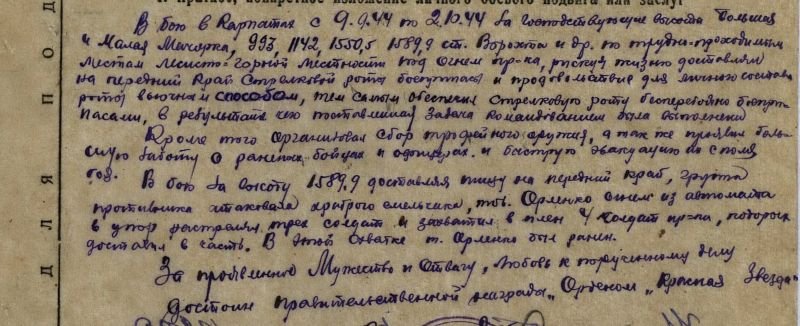 1. Краткое, конкретное изложение личного боевого подвига или заслуг
ДЛЯ ПОД
В бою в Карпатах с 9.9.44 по 2.10.44 за господствующие высоты Большая
и Малая 993, 1142, 1550,5 1589,9 ст. Ворохта и др. по трудно-проходимым
местам лесисто-горной местности под огнем пр-ка, рискуя жизнью доставлял
на передний край стрелковой роты боеприпасы и продовольствие для личного состава
роты вьючным способом, тем самым обеспечил стрелковую роту бесперебойно боепри-
пасами, в результате чего поставленная задача командованием была выполнена
Кроме того организовал сбор трофейного оружия, а так же проявил боль-
шую заботу о раненых бойцах и офицерах и быструю эвакуацию их с поля
боя.
В бою за высоту 1589,9 доставляя пищу на передний край, группа
противника атаковала храброго смельчака, тов. Орленко огнем из автомата
в упор расстрелял трех солдат и захватил в плен 4 солдат пр-ка, которых
доставил в часть. В этой схватке т. Орленко был ранен.
За проявленное Мужество и Отвагу, любовь к порученному делу
достоин правительственной награды „Орденом „Красная Звезда"